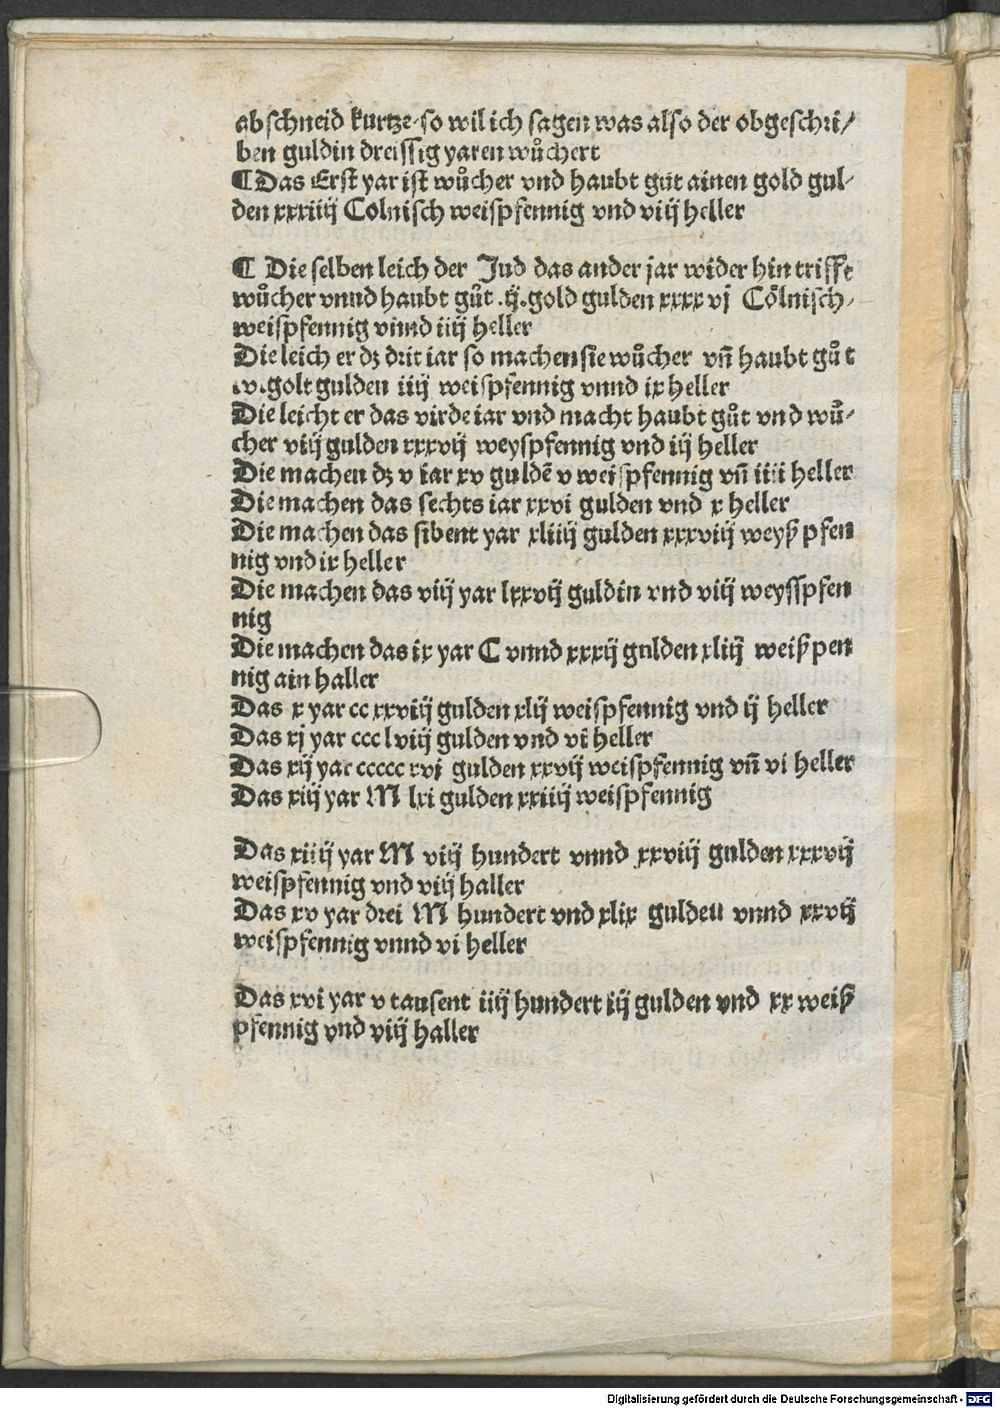 abschneid kurtze·so wil ich sagen was also der obgeschri/
ben guldin dreissig yaren wůchert
¶Das Erst yar ist wůcher vnd haubt gůt ainen gold gul-
den xxxiiij Colnisch weispfennig vnd viij heller
¶ Die selben leich der Jud das ander jar wider hin trifft
wůcher vnnd haubt gůt .ij.gold gulden xxxx vj Cölnisch-
weispfennig vnnd iiij heller
Die leich er dz drit iar so machen sie wůcher vñ haubt gůt
.v.golt gulden iiij weispfennig vnnd ix heller
Die leicht er das virde iar vnd macht haubt gůt vnd wů-
cher viij gulden xxxvij weyspfennig vnd iij heller
Die machen dz v iar xv guldē v weispfennig vñ iiii heller
Die machen das sechts iar xxvi gulden vnd x heller
Die machen das sibent yar xliiij gulden xxxviij weyß pfen
nig vnd ix heller
Die machen das viij yar lxxvij guldin vnd viij weysspfen
nig
Die machen das ix yar C vnnd xxxij gulden xliij weißpen
nig ain haller
Das x yar cc xxviij gulden xlij weispfennig vnd ij heller
Das xj yar ccc lviij gulden vnd vi heller
Das xij yar ccccc xvj gulden xxvij weispfennig vñ vi heller
Das xiij yar M lxi gulden xxiiij weispfennig
Das xiiij yar M viij hundert vnnd xxviij gulden xxxvij
weispfennig vnd viij haller
Das xv yar drei M hundert vnd xlix gulden vnnd xxvij
weispfennig vnnd vi heller
Das xvi yar v tausent iiij hundert iij gulden vnd xx weiß
pfennig vnd viij haller
Digitalisierung gefördert durch die Deutsche Forschungsgemeinschaft - DFG